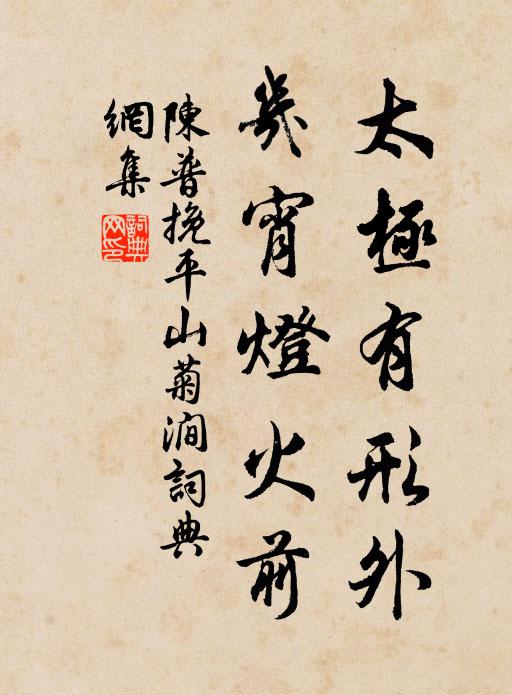 太極有形外
幾宵燈火前
陳普挽平山菊澗詞典
網集
詞典
网印